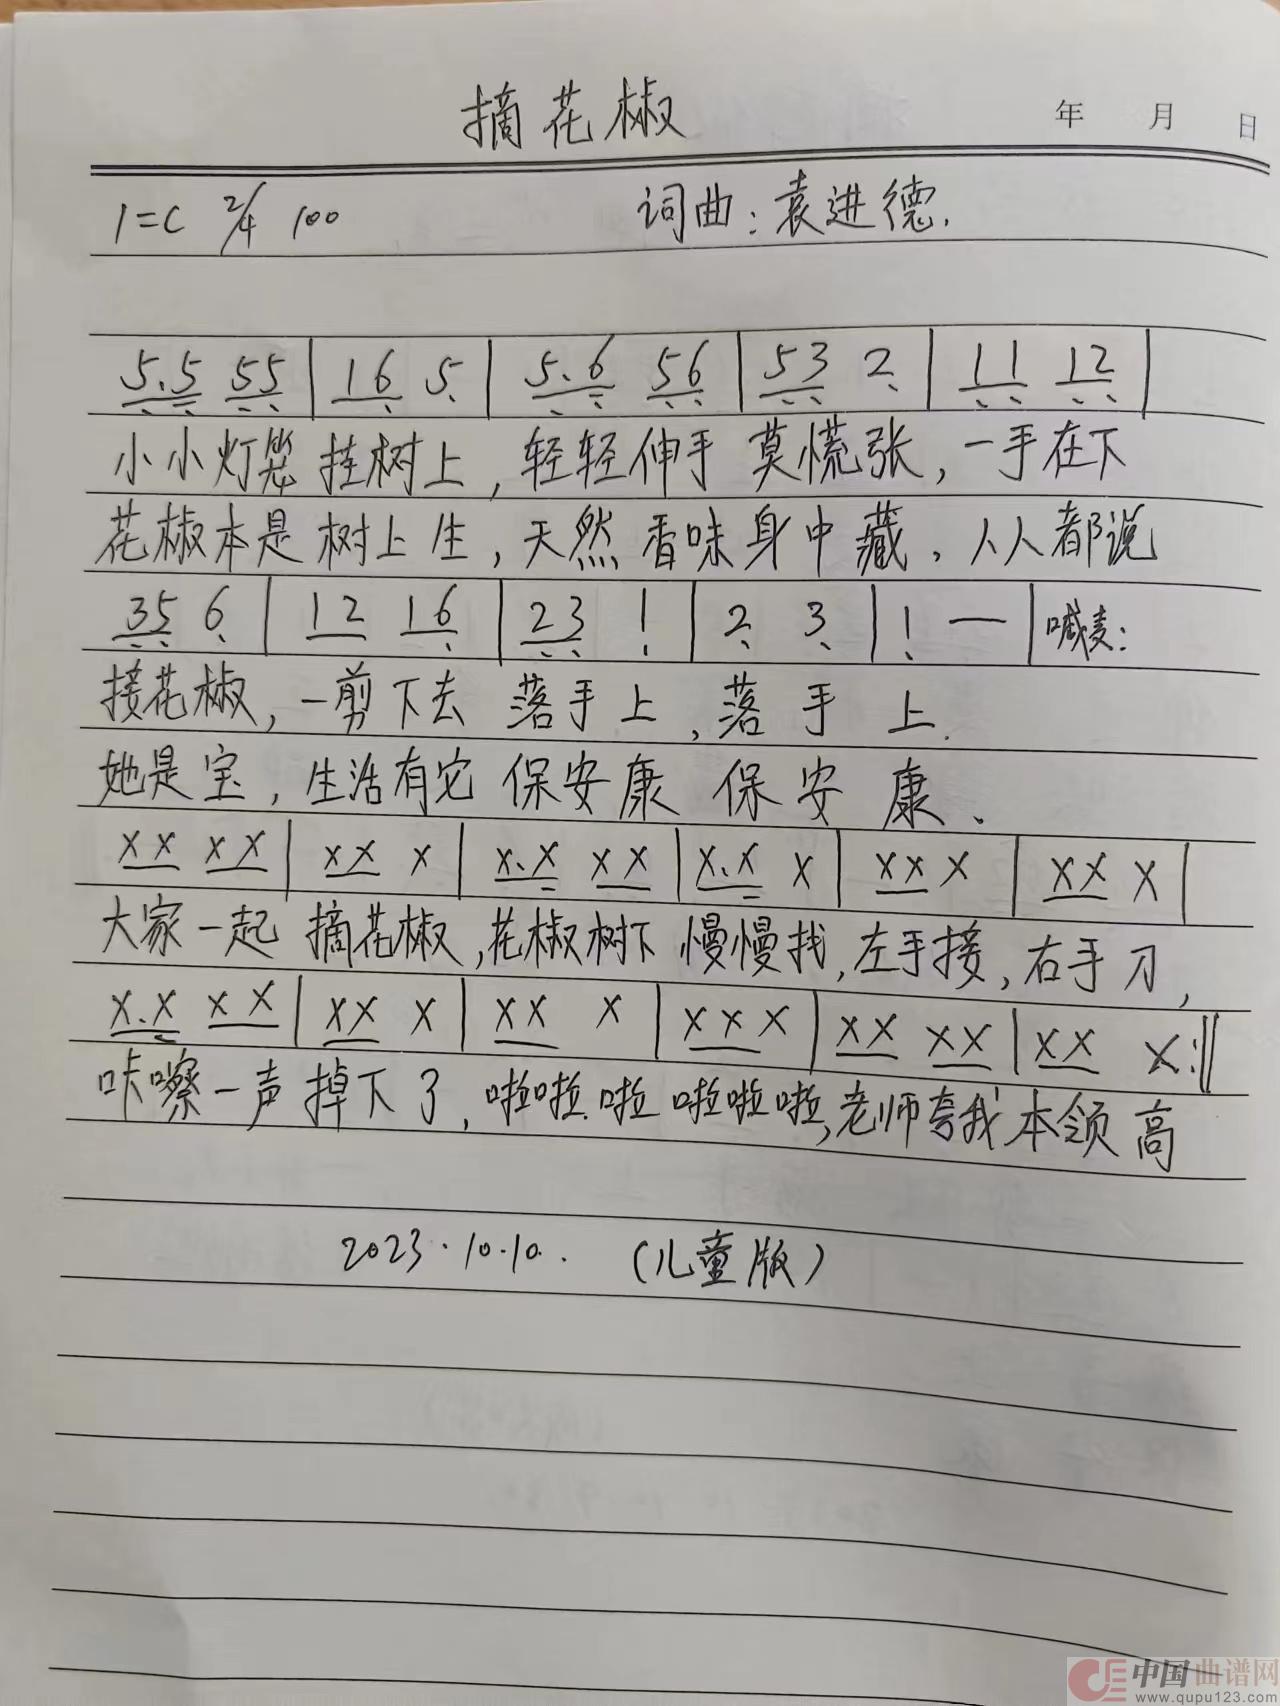 摘花椒
年 月 日
1=C 2/4 100 词曲：袁进德.
5.5 55 | 16 5 | 5.6 56 | 53 2 | 11 12 |
小小灯笼 挂树上，轻轻伸手 莫慌张，一手在下
花椒本是 树上生，天然香味身中藏，人人都说
35 6 | 12 16 | 23 1 | 2 3 | 1 — | 喊麦：
接花椒，一剪下去 落手上，落 手 上.
她是宝，生活有它 保安康 保 安 康、
XX XX | XX X | X.X XX | X.X X | XX X | XX X |
大家一起 摘花椒，花椒树下 慢慢找，左手接，右手刀，
X.X XX | XX X | XX X | XX X | XX XX | XX X :||
咔嚓一声 掉下了，啦啦 啦 啦啦啦，老师夸我本领高
2023.10.10. （儿童版）
中国曲谱网
www.qupu123.com